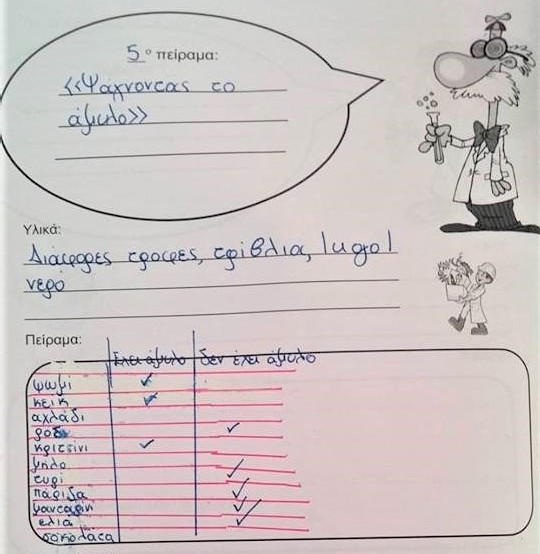 5º πείραμα:
«Ψάχνοντας το
άμυλο»
Υλικά:
Διάφορες τροφές, τρίβλια, lugol
νερό
Πείραμα:
Έχει άμυλο δεν έχει άμυλο
ψωμί ✓
κέικ ✓
αχλάδι
ρόδι ✓
κριτσίνι ✓
μήλο
τυρί ✓
πάριζα ✓
μανταρίνι ✓
ελιά ✓
σοκολάτα